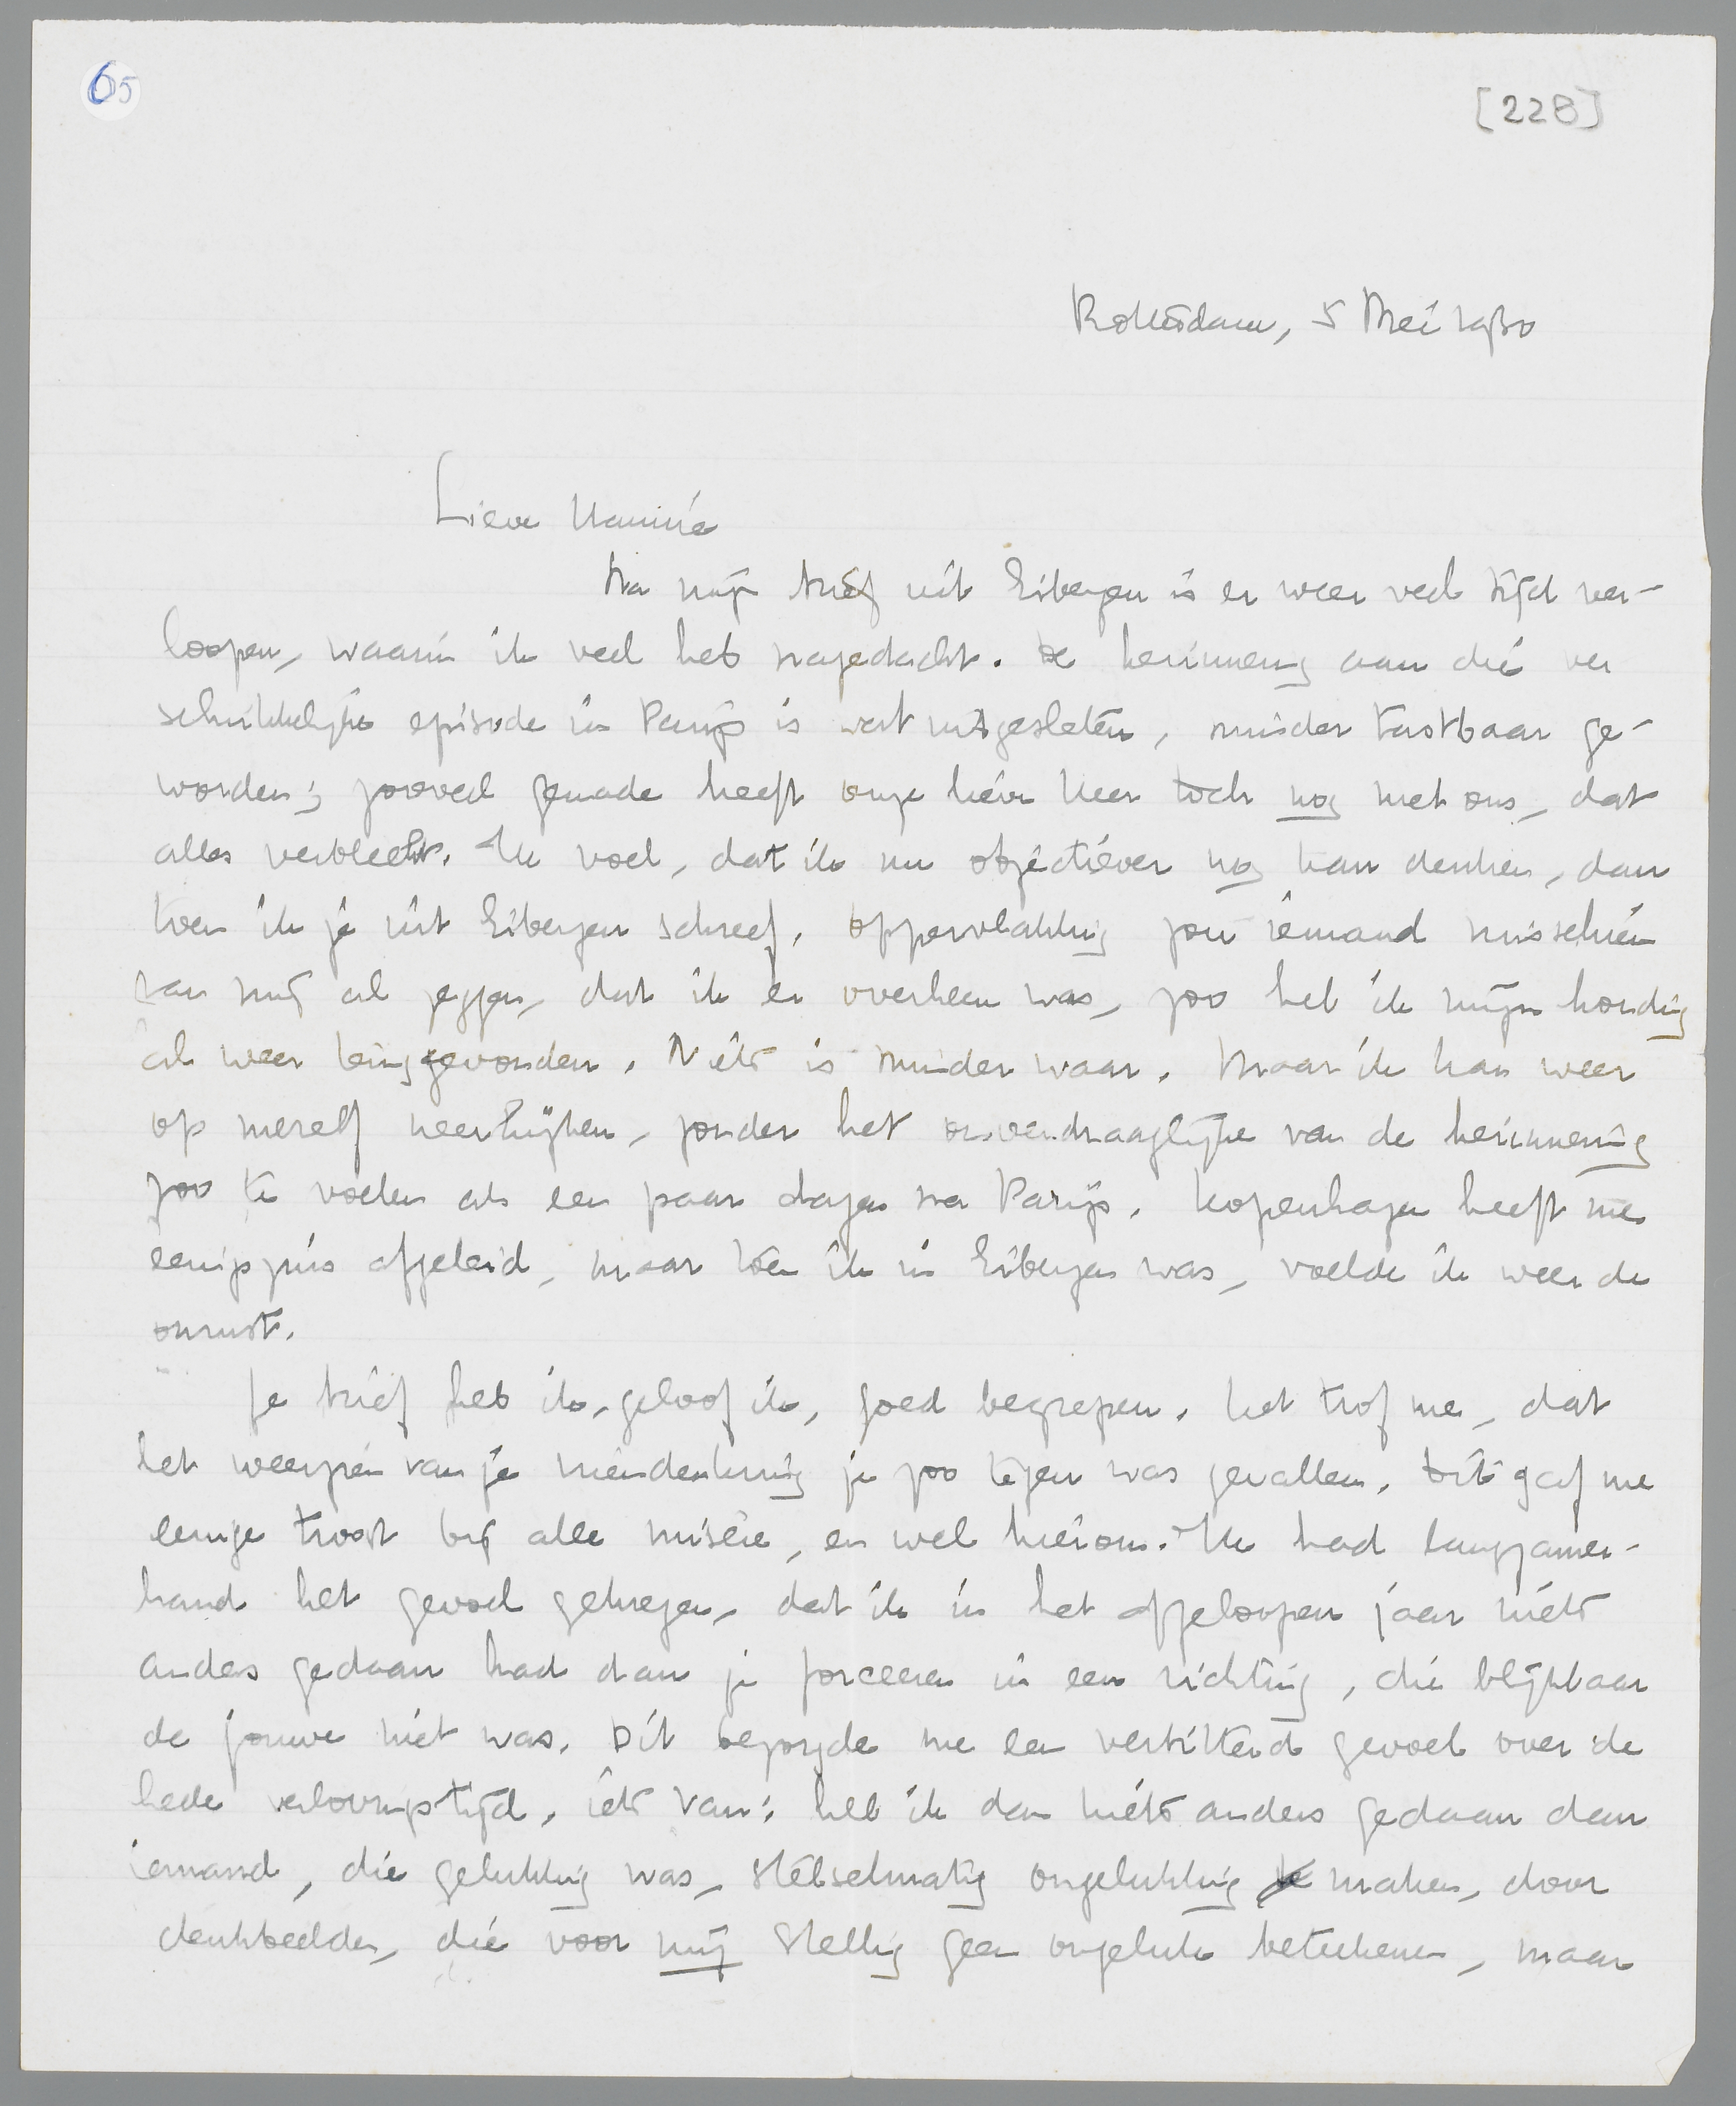 65
[228]
Rotterdam, 5 Mei 1930
Lieve Mannie
Na mijn brief uit Eibergen is er weer veel tijd ver-
loopen, waarin ik veel heb nagedacht. De herinnering aan die ver
schrikkelijke episode in Parijs is wat uitgesleten, minder tastbaar ge-
worden; zooveel genade heeft onze lieve Heer toch nog met ons, dat
alles verbleekt. Ik voel, dat ik nu objectiever nog kan denken, dan
toen ik je uit Eibergen schreef. Oppervlakkig zou iemand misschien
van mij al zeggen, dat ik er overheen was, zoo heb ik mijn houding
al weer teruggevonden. Niets is minder waar. Maar ik kan weer
op mezelf neerkijken, zonder het onverdraaglijke van de herinnering
zoo te voelen als een paar dagen na Parijs. Kopenhagen heeft me
eenigszins afgeleid, maar toen ik in Eibergen was, voelde ik weer de
onrust.
Je brief heb ik, geloof ik, goed begrepen. Het trof me, dat
het weerzien van je je zoo tegen was gevallen. Dit gaf me
eenige troost bij alle misère, en wel hierom. Ik had langzamer-
hand het gevoel gekregen, dat ik in het afgeloopen jaar niets
anders gedaan had dan je forceeren in een richting, die blijkbaar
de jouwe niet was. Dit bezorgde me een verbitterd gevoel over de
heele verlovingstijd, iets van: heb ik dan niets anders gedaan dan
iemand, die gelukkig was, stelselmatig ongelukkig te maken, door
denkbeelden, die voor mij stellig geen ongeluk beteekenen, maar